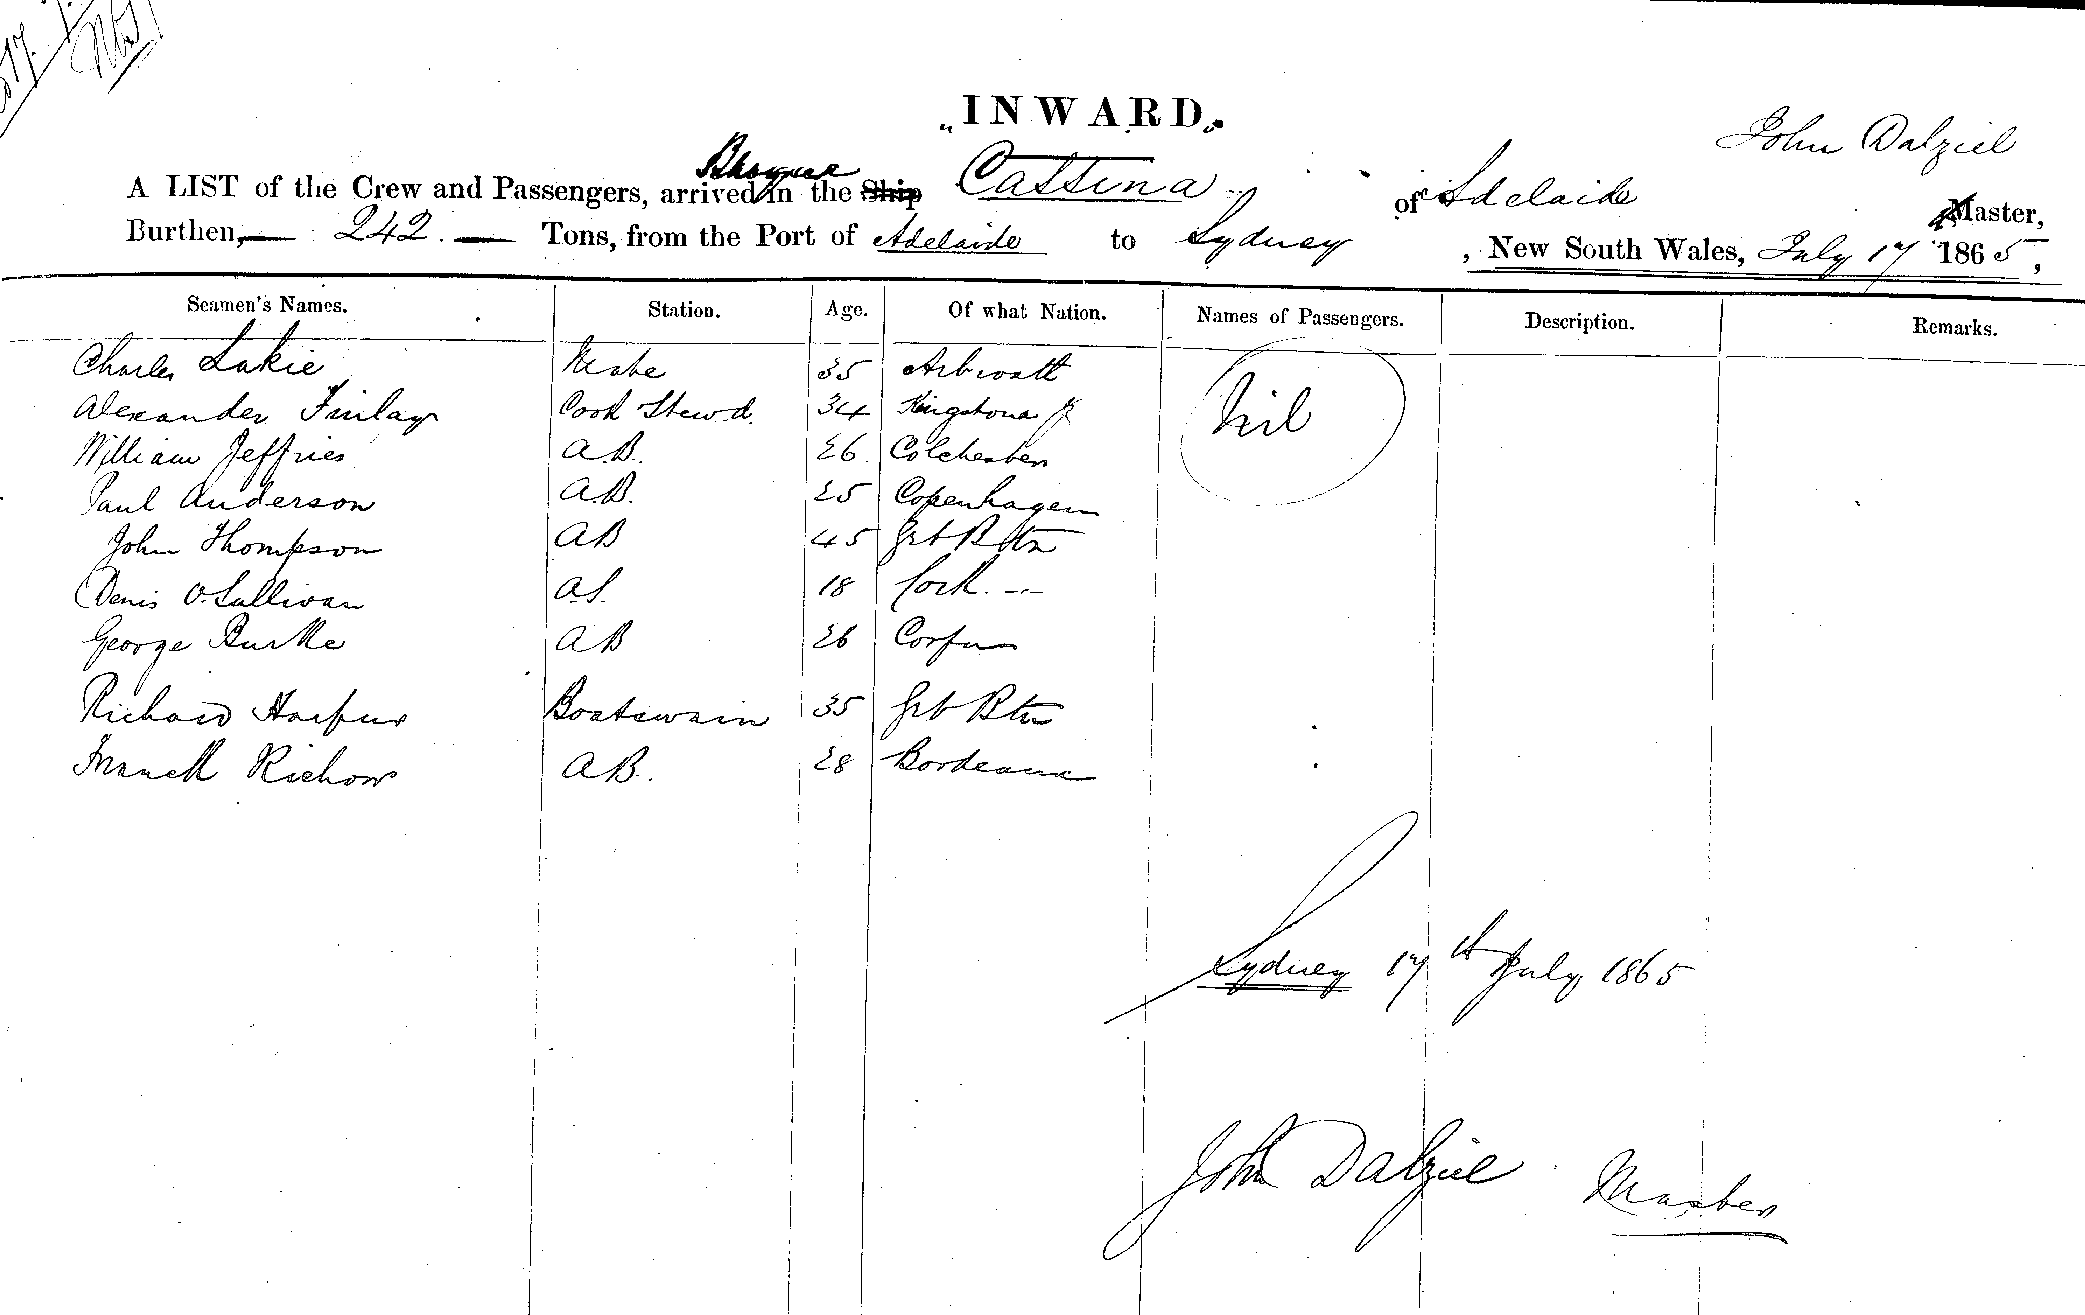 „INWARD.„
John Dalziel
A LIST of the Crew and Passengers, arrived in the Ship Barque Cattina of Adelaide Master,
Burthen, 242. Tons, from the Port of Adelaide to Sydney, New South Wales, July 17 1865,
Seamen's Names. Station. Age. Of what Nation. Names of Passengers. Description. Remarks.
Charles Lakie Mate 35 Arbroath Nil
Alexander Finlay Cook Stewd. 34 Kingstown
William Jeffries A.B. 26 Colchester
Paul Anderson A.B. 25 Copenhagen
John Thompson AB 45 Grt Btn
Denis O'Sullivan 18 Cork
George Burke AB 26 Corfu
Richard Harpur Boatswain 35 Grt Btn
Franck Richow AB. 28 Bordeaux
Sydney 17th July 1865
John Dalziel Master